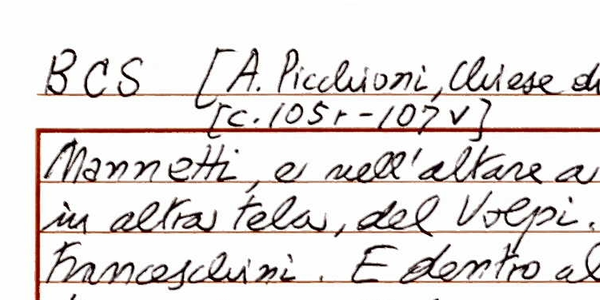 BCS [A. Picchioni, Chiese di
[c. 105r-107v]
Mannetti, e nell'altare a
in altra tela, del Volpi.
Franceschini. E dentro al